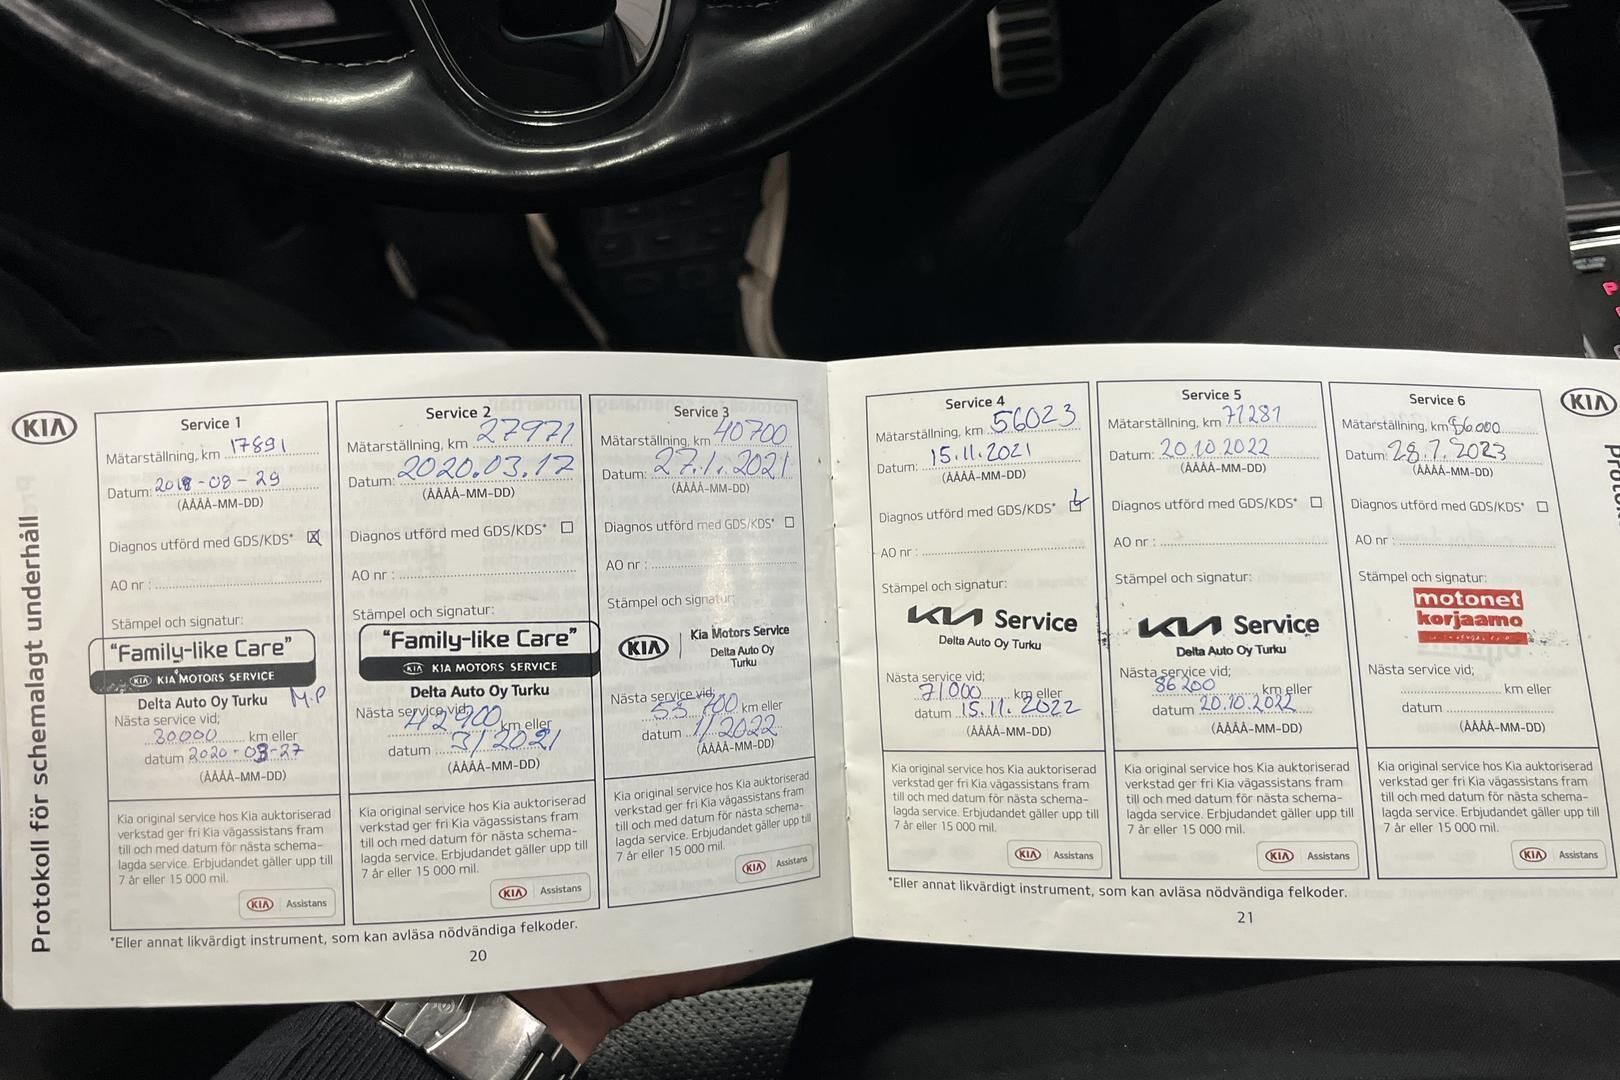 KIA
Protokoll för schemalagt underhåll
Service 1
Mätarställning, km 17891
Datum: 2018-08-29
(ÅÅÅÅ-MM-DD)
Diagnos utförd med GDS/KDS*
AO nr :
Stämpel och signatur:
"Family-like Care"
KIA KIA MOTORS SERVICE
Delta Auto Oy Turku M.P
Nästa service vid;
30000 km eller
datum 2020-03-27
(ÅÅÅÅ-MM-DD)
Kia original service hos Kia auktoriserad
verkstad ger fri Kia vägassistans fram
till och med datum för nästa schema-
lagda service. Erbjudandet gäller upp till
7 år eller 15 000 mil.
KIA Assistans
Service 2
Mätarställning, km 27971
Datum: 2020.03.17
(ÅÅÅÅ-MM-DD)
Diagnos utförd med GDS/KDS*
AO nr :
Stämpel och signatur:
"Family-like Care"
KIA KIA MOTORS SERVICE
Delta Auto Oy Turku
Nästa service vid;
42900 km eller
datum 3/2021
(ÅÅÅÅ-MM-DD)
Kia original service hos Kia auktoriserad
verkstad ger fri Kia vägassistans fram
till och med datum för nästa schema-
lagda service. Erbjudandet gäller upp till
7 år eller 15 000 mil.
KIA Assistans
Service 3
Mätarställning, km 40700
Datum: 27.1.2021
(ÅÅÅÅ-MM-DD)
Diagnos utförd med GDS/KDS*
AO nr :
Stämpel och signatur:
KIA Kia Motors Service
Delta Auto Oy
Turku
Nästa service vid;
55 700 km eller
datum 1/2022
(ÅÅÅÅ-MM-DD)
Kia original service hos Kia auktoriserad
verkstad ger fri Kia vägassistans fram
till och med datum för nästa schema-
lagda service. Erbjudandet gäller upp till
7 år eller 15 000 mil.
KIA Assistans
*Eller annat likvärdigt instrument, som kan avläsa nödvändiga felkoder.
20
Service 4
Mätarställning, km 56023
Datum: 15.11.2021
(ÅÅÅÅ-MM-DD)
Diagnos utförd med GDS/KDS*
AO nr :
Stämpel och signatur:
KIA Service
Delta Auto Oy Turku
Nästa service vid;
71000 km eller
datum 15.11.2022
(ÅÅÅÅ-MM-DD)
Kia original service hos Kia auktoriserad
verkstad ger fri Kia vägassistans fram
till och med datum för nästa schema-
lagda service. Erbjudandet gäller upp till
7 år eller 15 000 mil.
KIA Assistans
Service 5
Mätarställning, km 71281
Datum: 20.10.2022
(ÅÅÅÅ-MM-DD)
Diagnos utförd med GDS/KDS*
AO nr :
Stämpel och signatur:
KIA Service
Delta Auto Oy Turku
Nästa service vid;
86200 km eller
datum 20.10.2022
(ÅÅÅÅ-MM-DD)
Kia original service hos Kia auktoriserad
verkstad ger fri Kia vägassistans fram
till och med datum för nästa schema-
lagda service. Erbjudandet gäller upp till
7 år eller 15 000 mil.
KIA Assistans
Service 6
Mätarställning, km 86000
Datum: 28.7.2023
(ÅÅÅÅ-MM-DD)
Diagnos utförd med GDS/KDS*
AO nr :
Stämpel och signatur:
motonet
korjaamo
Nästa service vid;
km eller
datum
(ÅÅÅÅ-MM-DD)
Kia original service hos Kia auktoriserad
verkstad ger fri Kia vägassistans fram
till och med datum för nästa schema-
lagda service. Erbjudandet gäller upp till
7 år eller 15 000 mil.
KIA Assistans
*Eller annat likvärdigt instrument, som kan avläsa nödvändiga felkoder.
21
KIA
P